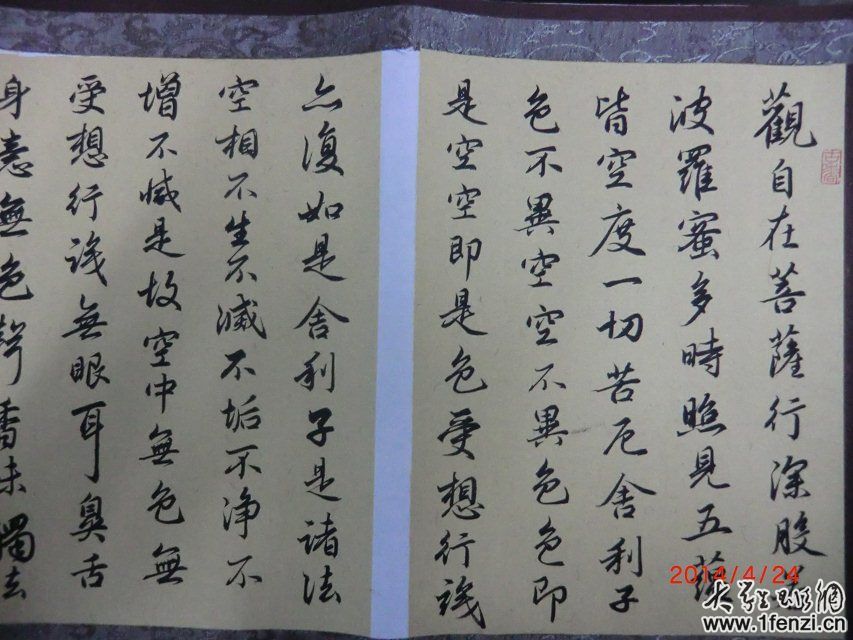 觀自在菩薩行深般若
波羅蜜多時照見五蘊
皆空度一切苦厄舍利子
色不異空空不異色色即
是空空即是色受想行識
亦復如是舍利子是諸法
空相不生不滅不垢不净不
增不減是故空中無色無
受想行識無眼耳鼻舌
身意無色聲香味觸法
2014/4/24
www.1fenzi.cn